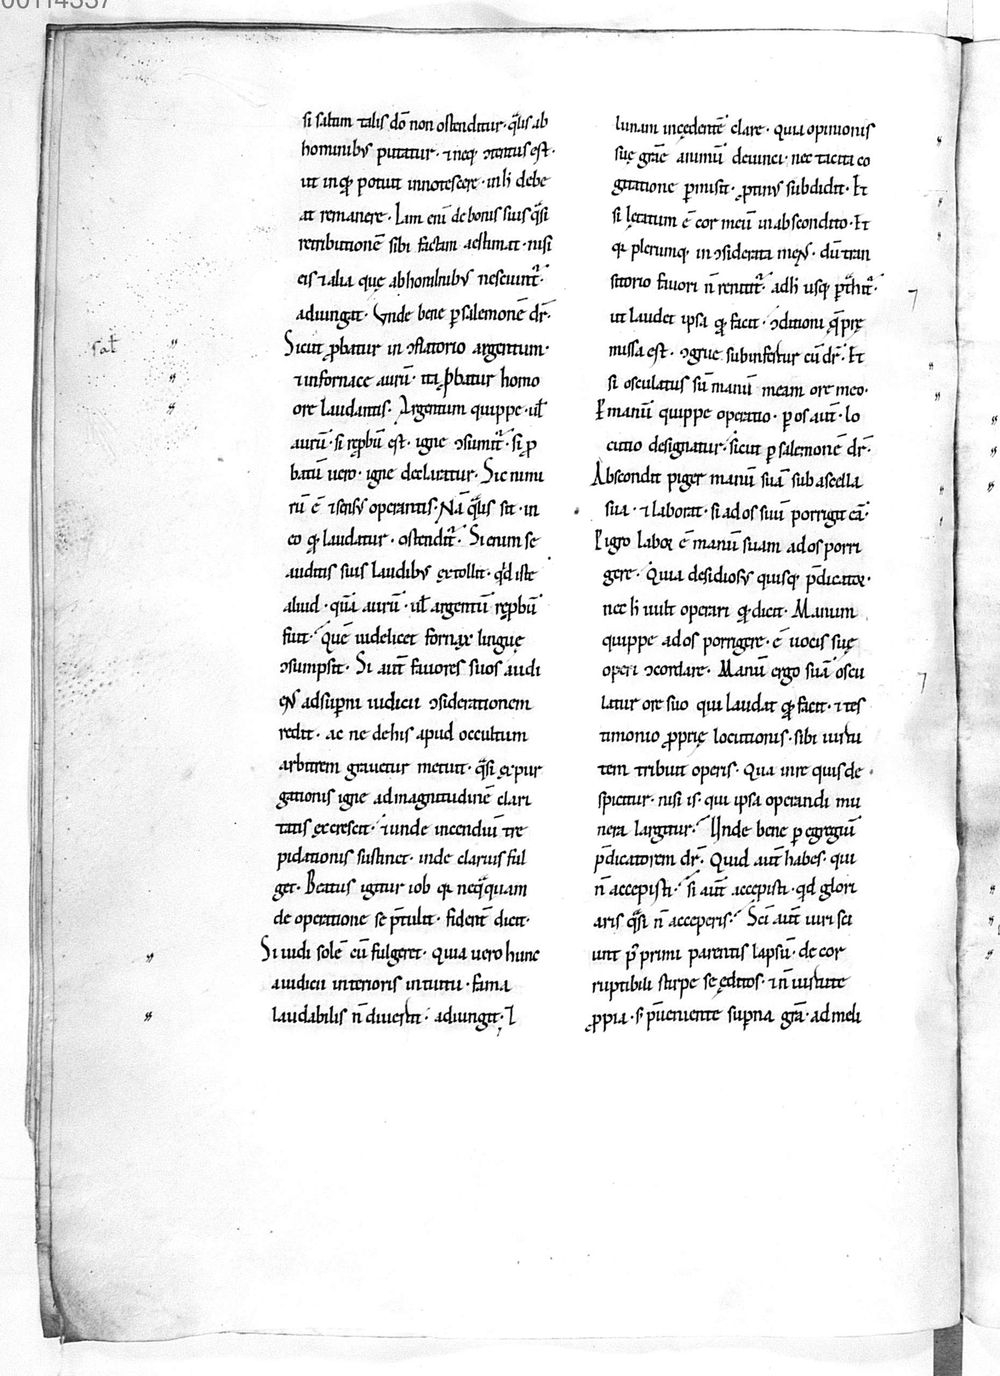 00114337
si saltim talis dō non ostenditur· q̄lis ab
hominib; putatur· ⁊ neq; ↄtentus est·
ut inq̄ potuit innotescere· inh̄ debe
at remanere· Iam enī de bonis suis q̄si
retributionē sibi factam aestimat· nisi
eis ⁊ alia quę ab hominib; nesciunt̃
adiungit· Unde bene p salemonē dr̄·
Sicut ꝓbatur in ↄflatorio argentum·
⁊ in fornace aurū· ita ꝓbatur homo
ore laudantis· Argentum quippe· ul̄
aurū· si repbū est· igne ↄsumit̃· si ꝓ
batū uero· igne declaratur· Sic nimi
rū ē ⁊ sensus operantis· Nā q̄lis sit· in
eo qđ laudatur· ostendit̃· Si enim se
auditis suis laudib; extollit· qđ iste
aliud· quā aurū· ul̄ argentū repbū
fuit· Quē uidelicet fornax linguę
ↄsumpsit· Si aut̄ fauores suos audi
ens ad supni iudicii ↄsiderationem
redit· ac ne de his apud occultum
arbitrem grauetur metuit· q̄si ex pur
gationis igne ad magnitudinē clari
tatis excrescit· ⁊ unde incendiū tre
pidationis sustinet· inde clarius ful
get· Beatus igitur iob qi neq̄quam
de operatione se p̄tulit· fidenť dicit·
Si uidi solē cū fulgeret· quia uero hunc
a iudicii interioris intuitu· fama
laudabilis n̄ diuertit· adiungit· ⁊
sal̄
lunam incedentē clare· quia opinionis
suę grāe animū deuinci· nec tacita co
gitatione pmisit· ꝓtinus subdidit· Et
si lętatum ē cor meū in abscondito· Et
qi plerumq; in ↄsiderata mens· dū tran
sitorio fauori n̄ renitit̃· ad h̄ usq; ptrahit̃·
ut laudet ipsa qđ facit· ↄditioni q̄ prę
missa est· ↄgrue subinfertur cū dr̄· Et
si osculatus sū manū meam ore meo·
P manū quippe operatio· p os aut̄· lo
cutio designatur· sicut p salemonē dr̄·
Abscondit piger manū suā sub ascella
sua· ⁊ laborat· si ad os suū porrigit eā·
Pigro labor ē manū suam ad os porri
gere· Quia desidiosus quisq; p̄dicator·
nec h̄ uult operari qđ dicit· Manum
quippe ad os porrigere· ē uocis suę
operi ↄcordare· Manū ergo suā oscu
latur ore suo qui laudat qđ facit· ⁊ tes
timonio ꝓprię locutionis· sibi uirtu
tem tribuit operis· Qua in re quis de
spicitur· nisi is· qui ipsa operandi mu
nera largitur· Unde bene p egregiū
p̄dicatorem dr̄· Quid aut̄ habes· qui
n̄ accepisti· si aut̄ accepisti· qđ glori
aris q̄si n̄ acceperis· Sc̄i aut̄ uiri sci
unt p̊ primi parentis lapsū· de cor
ruptibili stirpe se ęditos· ⁊ n̄ uirtute
ꝓpria· s; p̄ueniente supna grā· ad meli